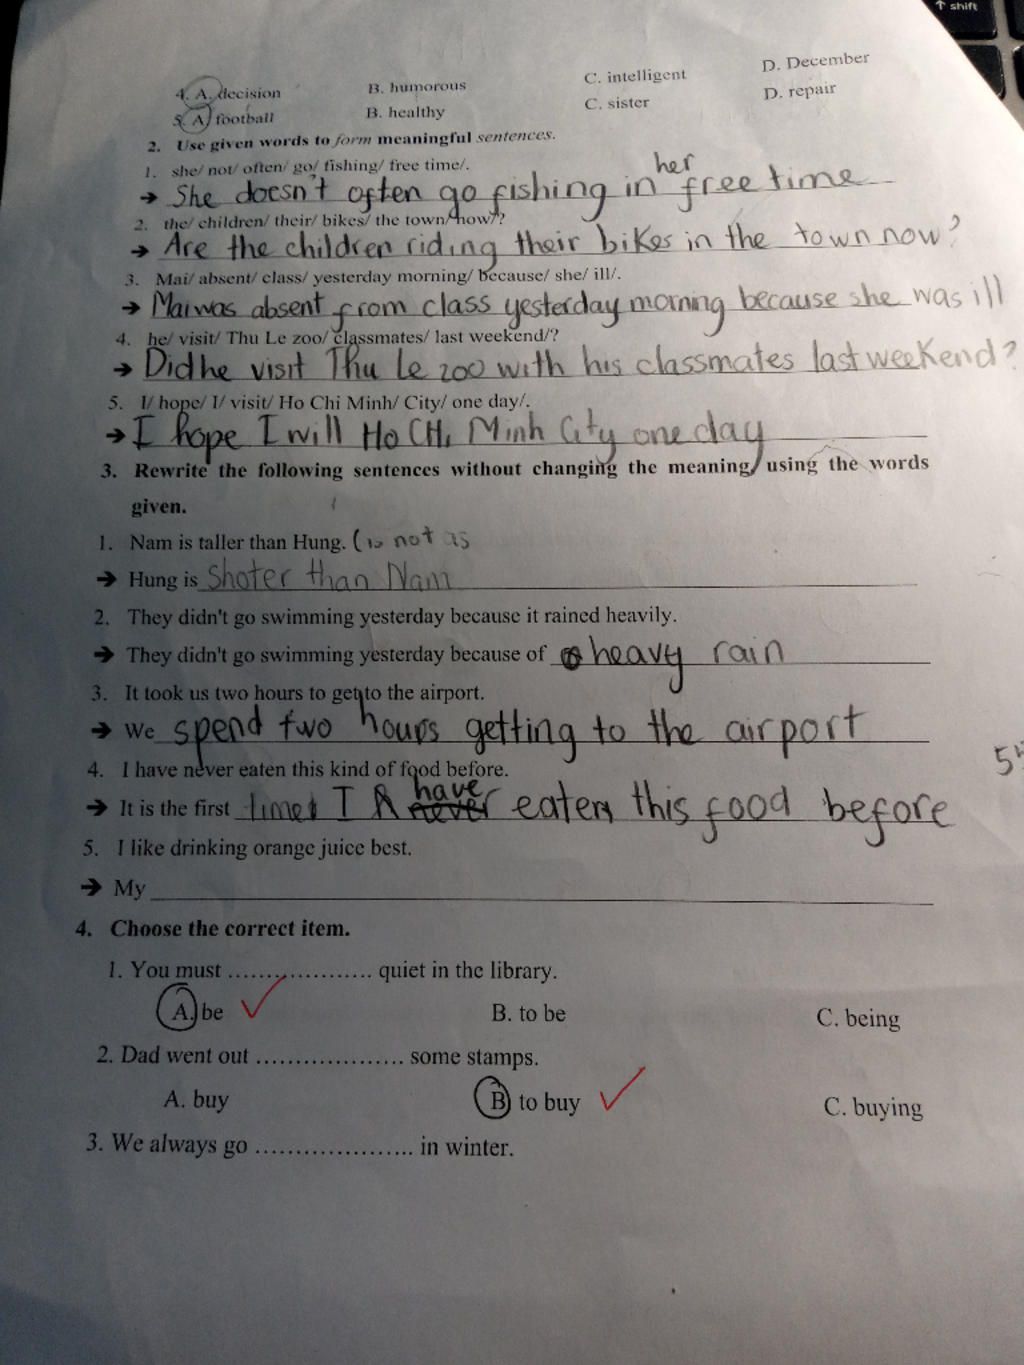 ↑ shift
4. A. decision B. humorous C. intelligent D. December
5. A. football B. healthy C. sister D. repair
2. Use given words to form meaningful sentences.
1. she/ not/ often/ go/ fishing/ free time/.
→ She doesn't often go fishing in her free time
2. the/ children/ their/ bikes/ the town/ now/?
→ Are the children riding their bikes in the town now?
3. Mai/ absent/ class/ yesterday morning/ because/ she/ ill/.
→ Mai was absent from class yesterday morning because she was ill
4. he/ visit/ Thu Le zoo/ classmates/ last weekend/?
→ Did he visit Thu Le zoo with his classmates last weekend?
5. I/ hope/ I/ visit/ Ho Chi Minh/ City/ one day/.
→ I hope I will Ho CHi Minh City one day
3. Rewrite the following sentences without changing the meaning, using the words
given.
1. Nam is taller than Hung. (is not as
→ Hung is shoter than Nam
2. They didn't go swimming yesterday because it rained heavily.
→ They didn't go swimming yesterday because of heavy rain
3. It took us two hours to get to the airport.
→ We spend two hours getting to the airport
4. I have never eaten this kind of food before.
→ It is the first time I have eaten this food before
5. I like drinking orange juice best.
→ My
4. Choose the correct item.
1. You must .................. quiet in the library.
A. be B. to be C. being
2. Dad went out .................... some stamps.
A. buy B. to buy C. buying
3. We always go ..................... in winter.